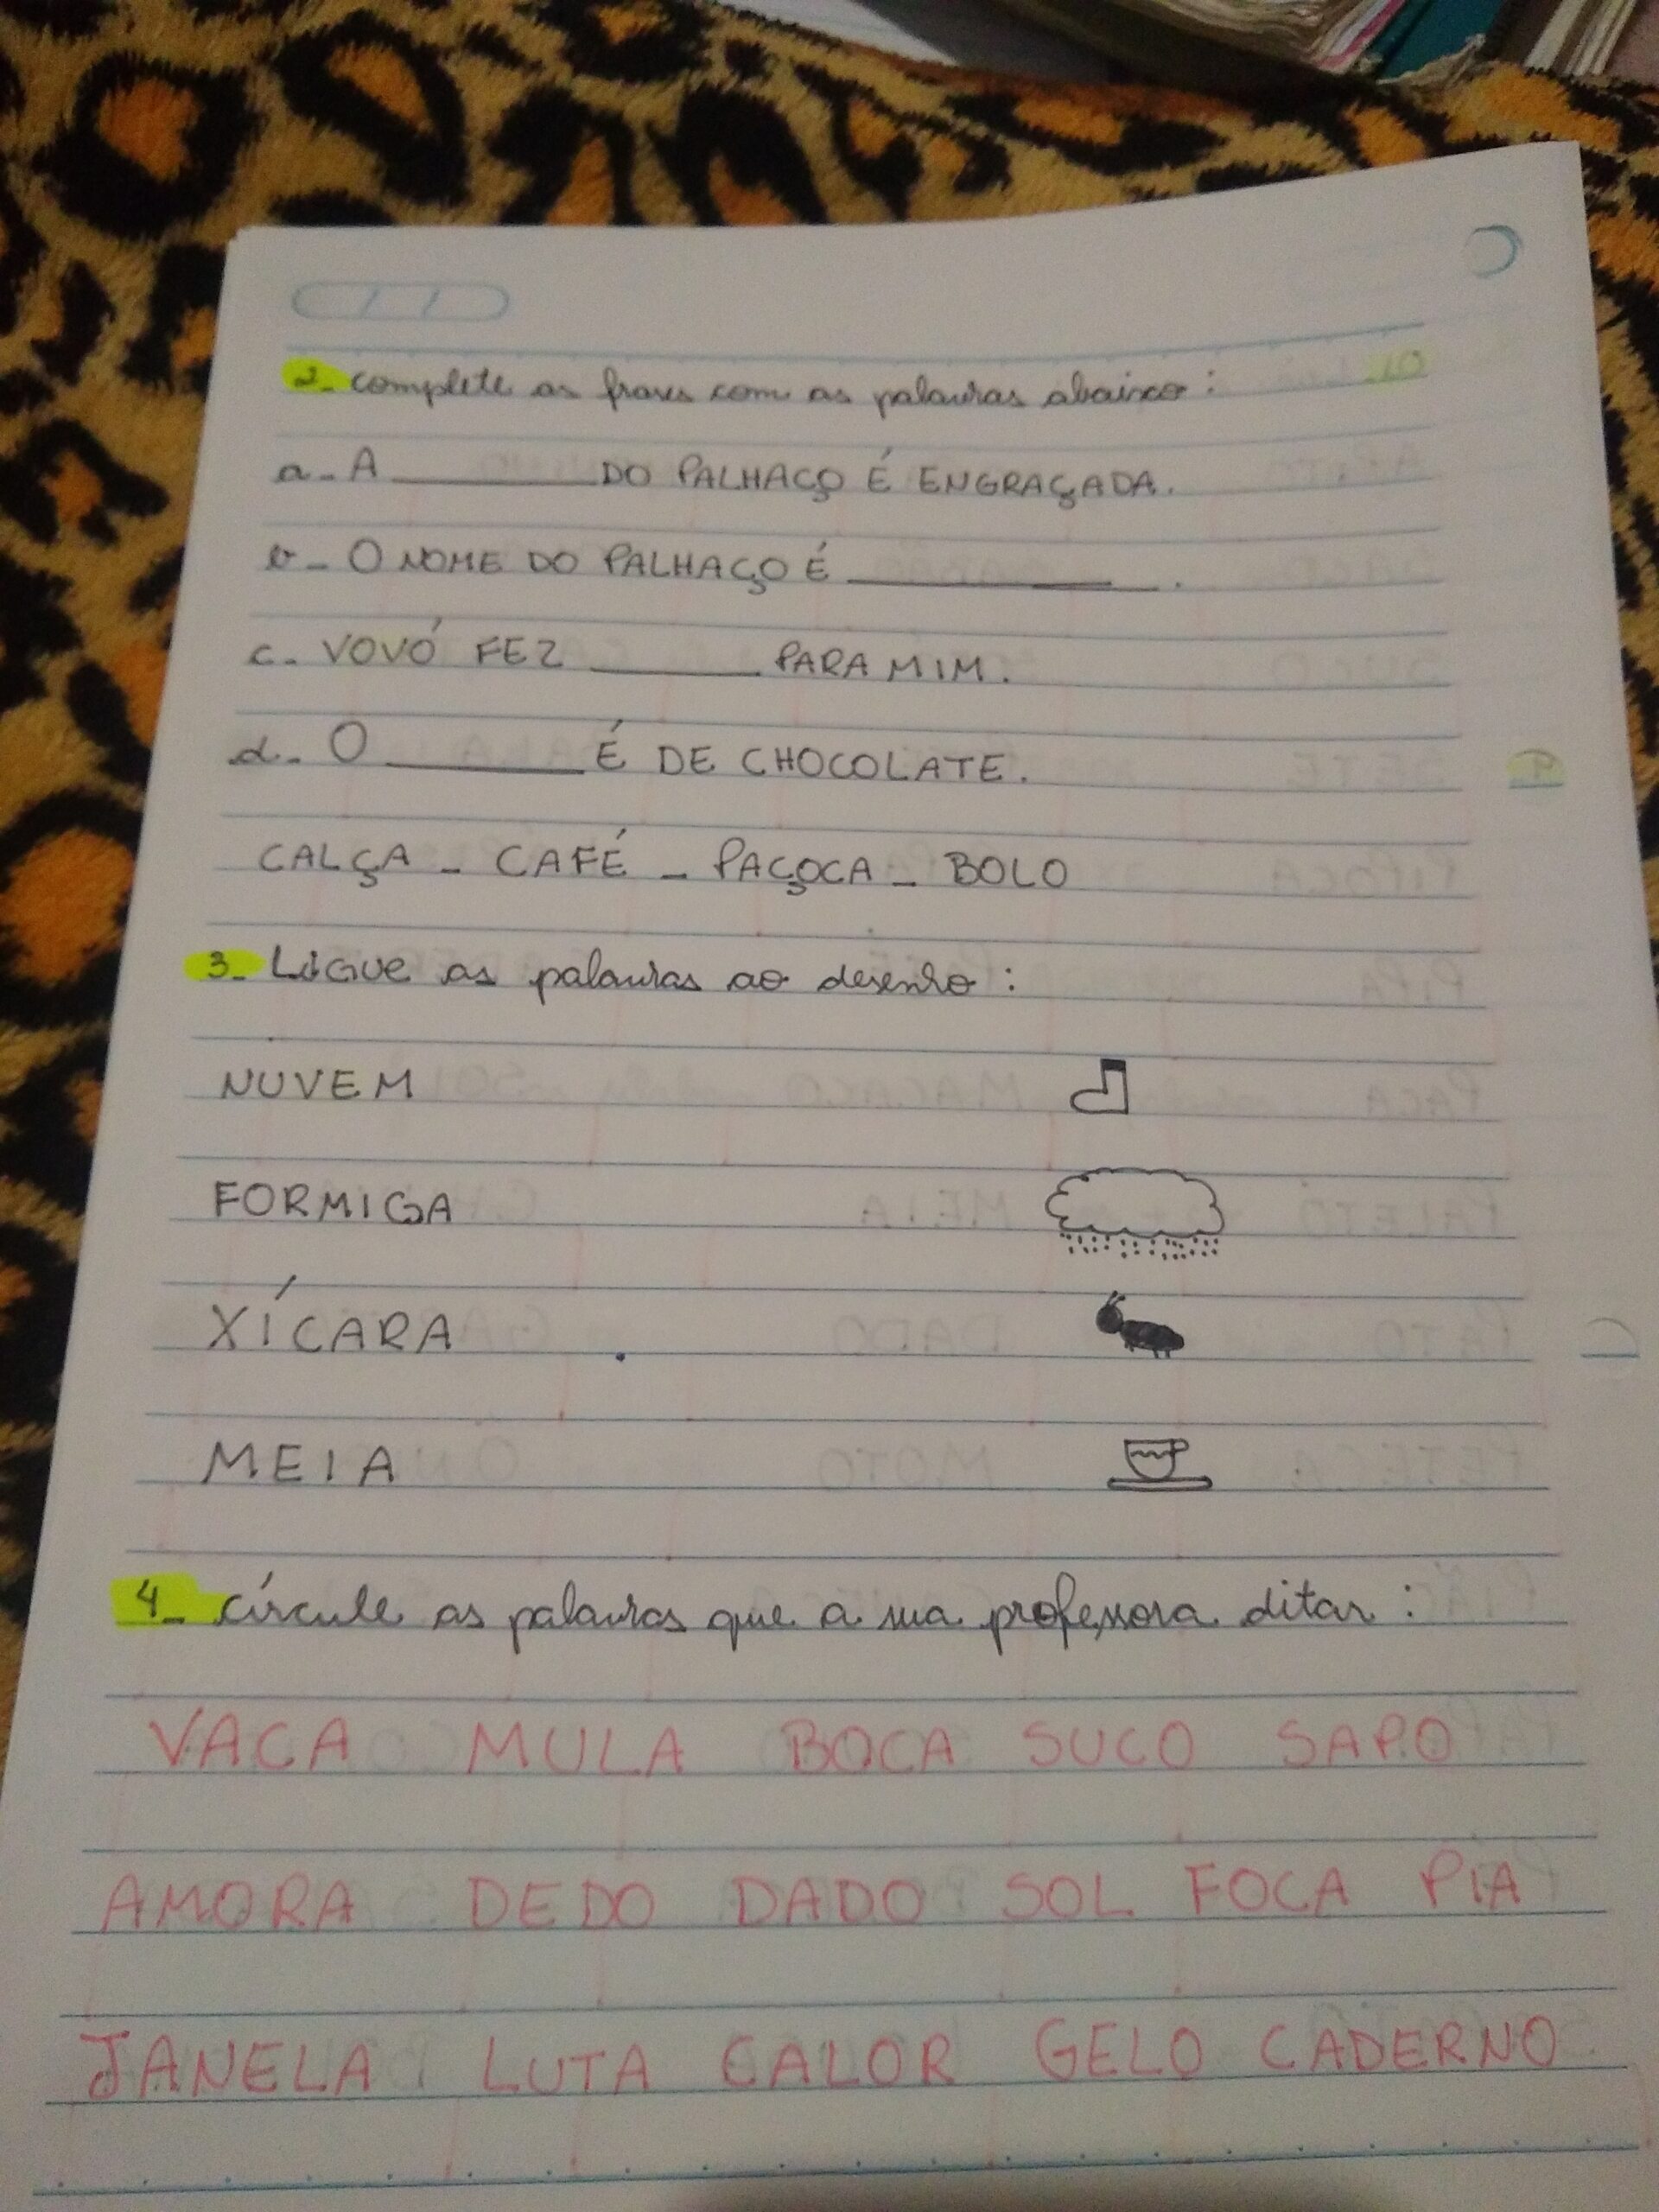 2- complete as frases com as palavras abaixo:
a- A ________ DO PALHAÇO É ENGRAÇADA.
b- O NOME DO PALHAÇO É ________.
c- VOVÓ FEZ ________ PARA MIM.
d- O ________ É DE CHOCOLATE.
CALÇA - CAFÉ - PAÇOCA - BOLO
3- LIGUE as palavras ao desenho:
NUVEM
FORMIGA
XÍCARA
MEIA
4- círcule as palavras que a sua professora ditar:
VACA MULA BOCA SUCO SAPO
AMORA DEDO DADO SOL FOCA PIA
JANELA LUTA CALOR GELO CADERNO